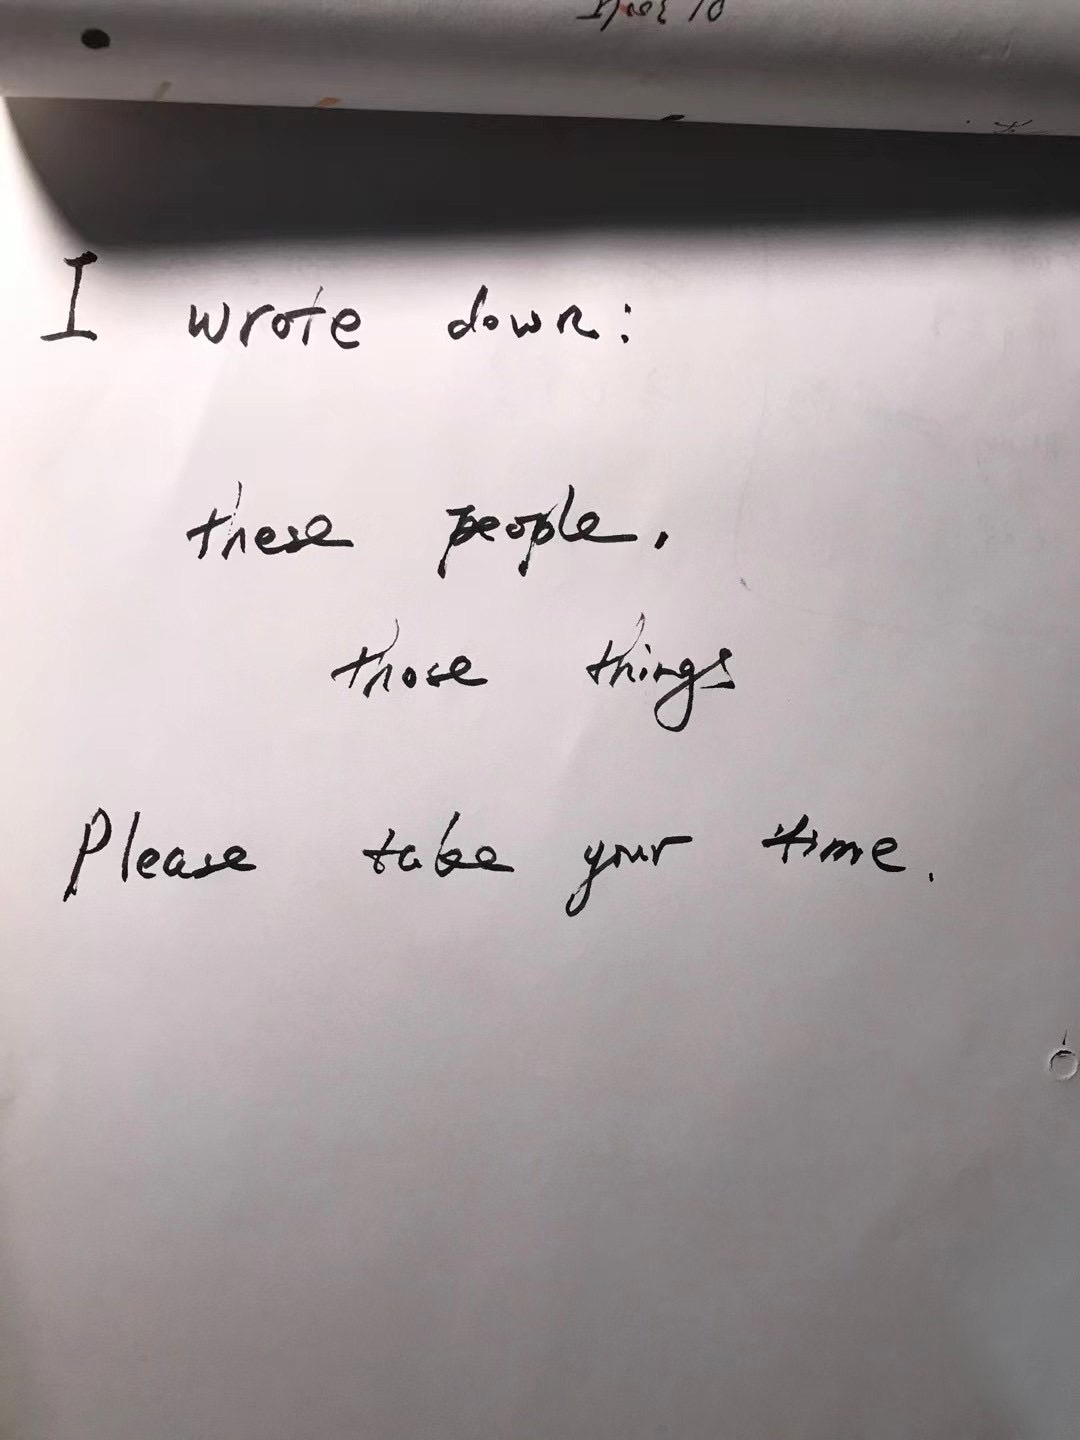 I wrote down:
these people.
those things
Please take your time.